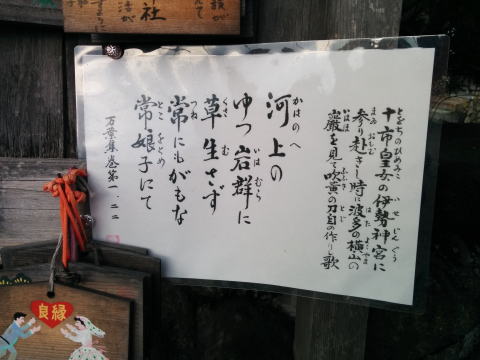 十市皇女の伊勢神宮に
参り赴きし時に波多の横山の
巌を見て吹黄の刀自の作りし歌
河上の
ゆつ岩群に
草生さず
常にもがもな
常娘子にて
万葉集巻第一・二二
社
良縁